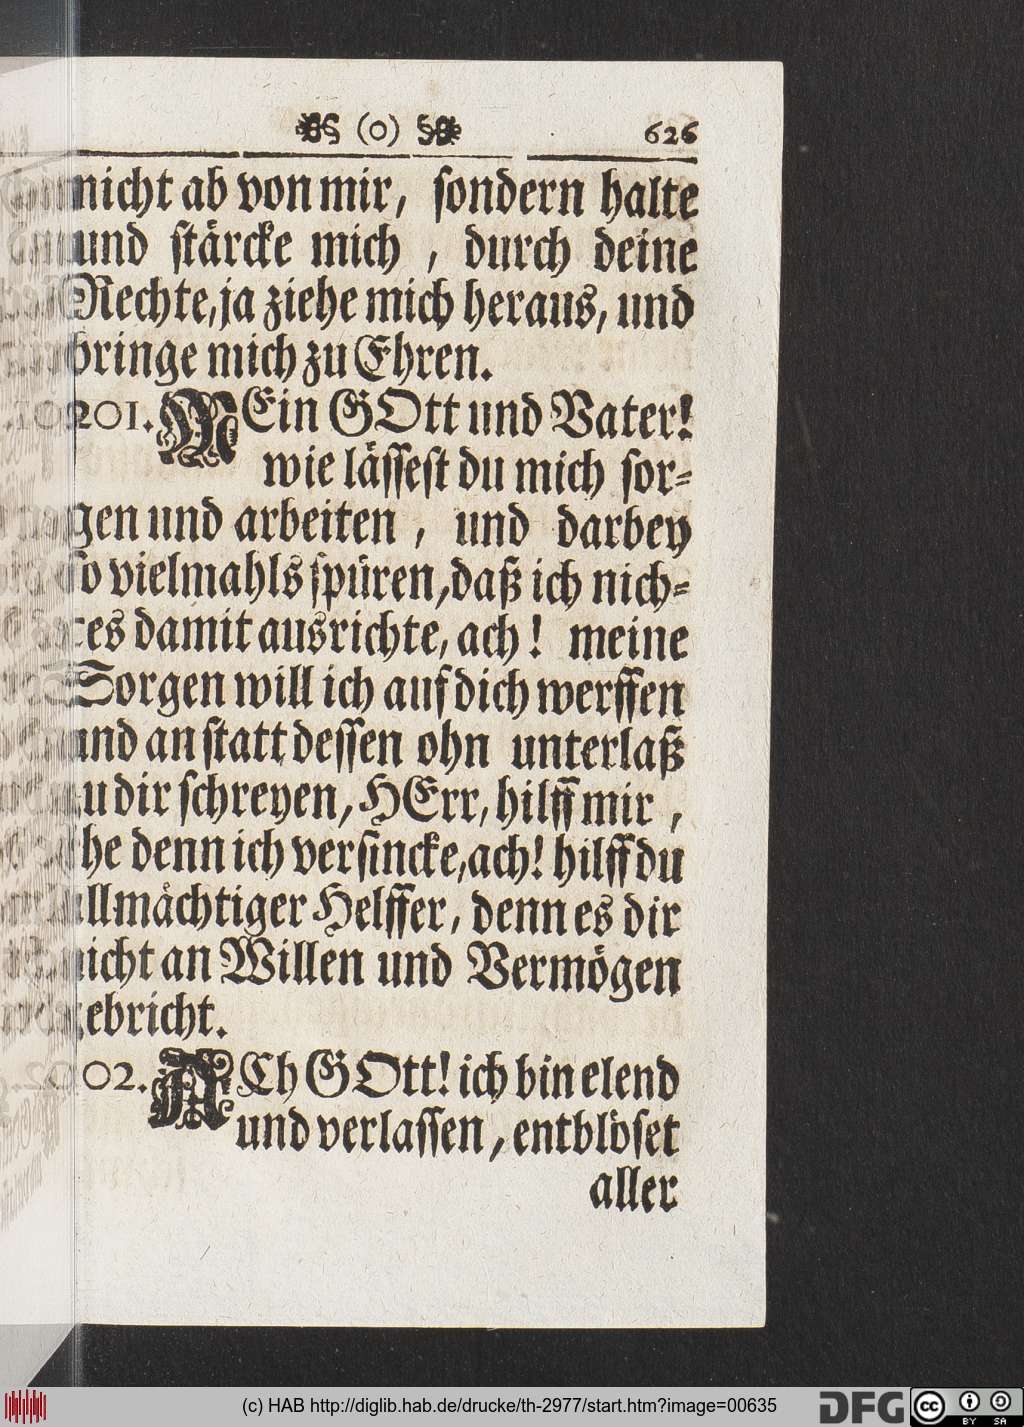 (o) 626
nicht ab von mir, sondern halte
und stärcke mich, durch deine
Rechte, ja ziehe mich heraus, und
bringe mich zu Ehren.
201. MEin GOtt und Vater!
wie lässest du mich sor=
gen und arbeiten, und darbey
so vielmahls spüren, daß ich nich=
es damit ausrichte, ach! meine
Sorgen will ich auf dich werffen
und an statt dessen ohn unterlaß
zu dir schreyen, HErr, hilff mir,
ehe denn ich versincke, ach! hilff du
allmächtiger Helffer, denn es dir
nicht an Willen und Vermögen
gebricht.
202. ACh GOtt! ich bin elend
und verlassen, entblöset
aller
(c) HAB http://diglib.hab.de/drucke/th-2977/start.htm?image=00635
DFG
cc BY SA